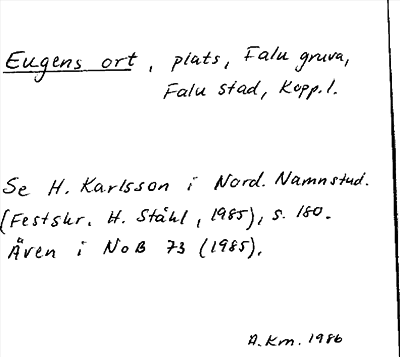 Eugens ort, plats, Falu gruva,
Falu stad, Kopp.l.
Se H. Karlsson i Nord. Namnstud.
(Festskr. H. Ståhl, 1985), s. 180.
Även i NoB 73 (1985).
A.Km. 1986